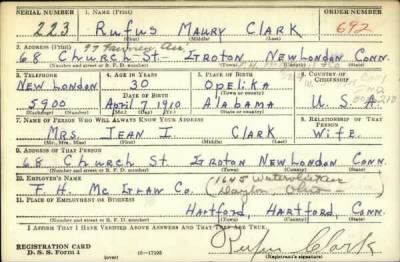 SERIAL NUMBER 1. NAME (Print) ORDER NUMBER
223 Rufus Maury Clark 692
(First) (Middle) (Last)
2. ADDRESS (Print)
68 Church St. Groton New London Conn.
(Number and street or R. F. D. number) (Town) (County) (State)
3. TELEPHONE 4. AGE IN YEARS 5. PLACE OF BIRTH 6. COUNTRY OF CITIZENSHIP
New London 30 Opelika
DATE OF BIRTH
5900 April 7 1910 Alabama U.S.A.
(Exchange) (Number) (Mo.) (Day) (Yr.) (Town or county) (State or country)
7. NAME OF PERSON WHO WILL ALWAYS KNOW YOUR ADDRESS 8. RELATIONSHIP OF THAT PERSON
Mrs. Jean I. Clark Wife
(Mr., Mrs., Miss) (First) (Middle) (Last)
9. ADDRESS OF THAT PERSON
68 Church St. Groton New London Conn.
(Number and street or R. F. D. number) (Town) (County) (State)
10. EMPLOYER'S NAME
F. H. Mc Graw Co. Dayton Ohio
11. PLACE OF EMPLOYMENT OR BUSINESS
Hartford, Hartford Conn.
(Number and street or R. F. D. number) (Town) (County) (State)
I AFFIRM THAT I HAVE VERIFIED ABOVE ANSWERS AND THAT THEY ARE TRUE.
REGISTRATION CARD
D. S. S. Form 1
(over) 16-17105
Rufus Clark
(Registrant's signature)